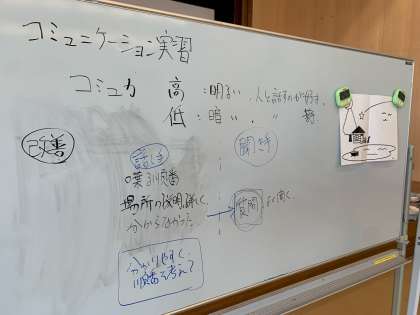 コミュニケーション実習
コミュ力 高 :明るい、人と話すのが好き
低 :暗い、〃
改善
話し手
聞き手
順番
場所の説明難しく
分からなかった
質問 よく聞く
分かりやすく、
順番を考えて